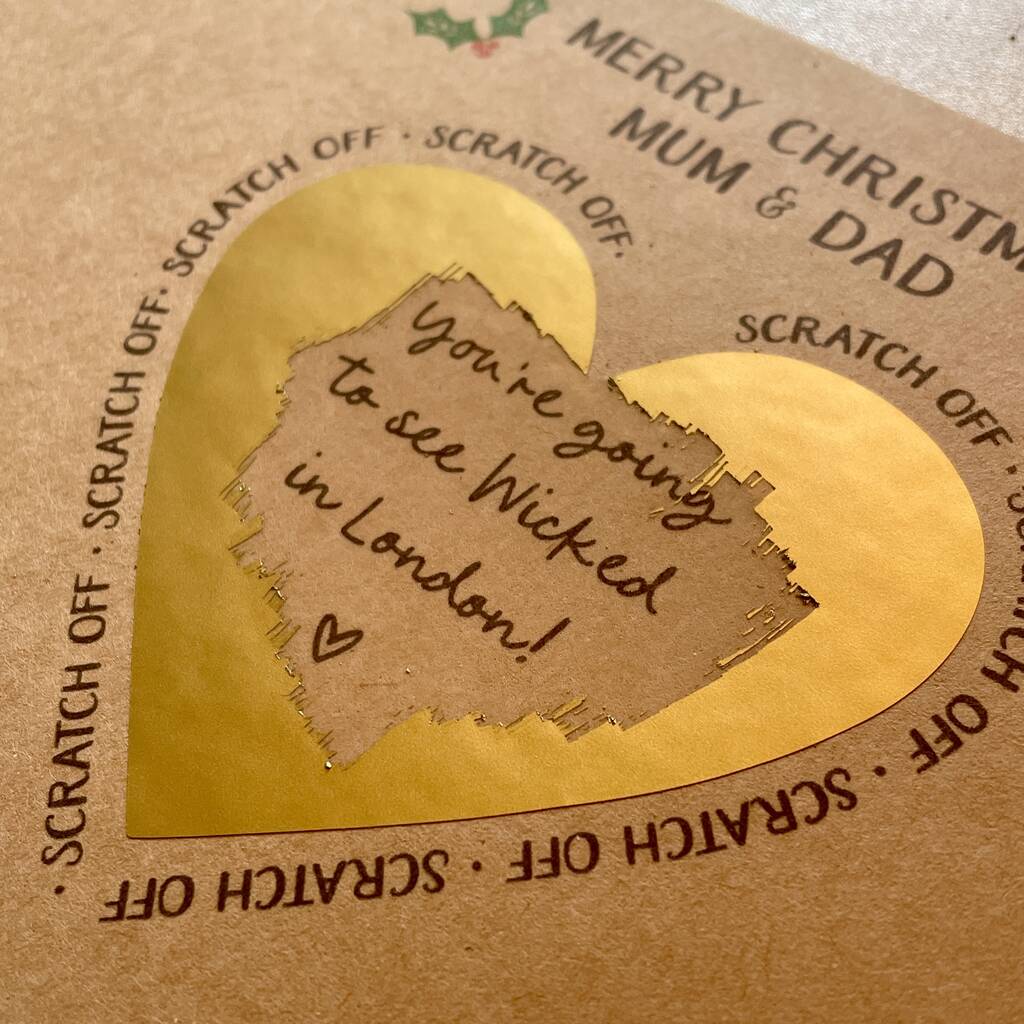 MERRY CHRISTM
MUM & DAD
· SCRATCH OFF · SCRATCH OFF · SCRATCH OFF · SCRATCH OFF ·
SCRATCH OFF · SCRATCH OFF · SCRATCH OFF · SCRATCH OFF
You're going
to see Wicked
in London!